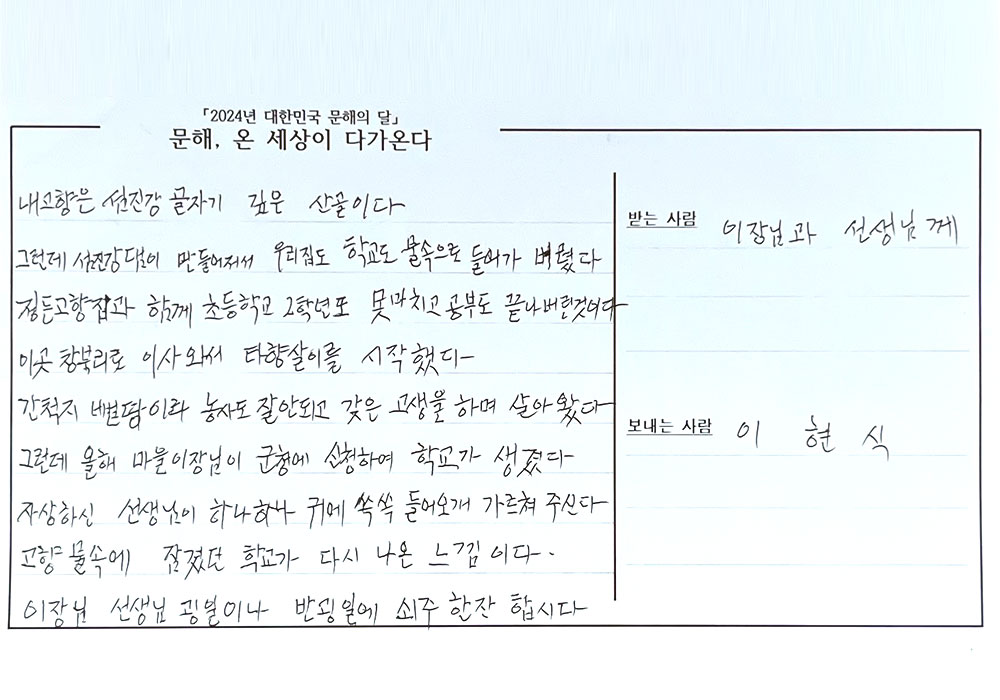 「2024년 대한민국 문해의 달」
문해, 온 세상이 다가온다
내고향은 섬진강 골자기 깊은 산골이다
그런데 섬진강댐이 만들어저서 우리집도 학교도 물속으로 들어가 버렸다
정든고향집과 함께 초등학교 2학년도 못마치고 공부도 끝나버린것이다
이곳 창북리로 이사와서 타향살이를 시작했다
간척지 뻘땅이라 농사도 잘안되고 갖은 고생을 하며 살아왔다
그런데 올해 마을이장님이 군청에 신청하여 학교가 생겼다
자상하신 선생님이 하나하나 귀에 쏙쏙 들어오개 가르쳐 주신다
고향 물속에 잠겼던 학교가 다시 나온 느낌이다.
이장님 선생님 굉일이나 반굉일에 쇠주 한잔 합시다
받는 사람 이장님과 선생님께
보내는 사람 이현식